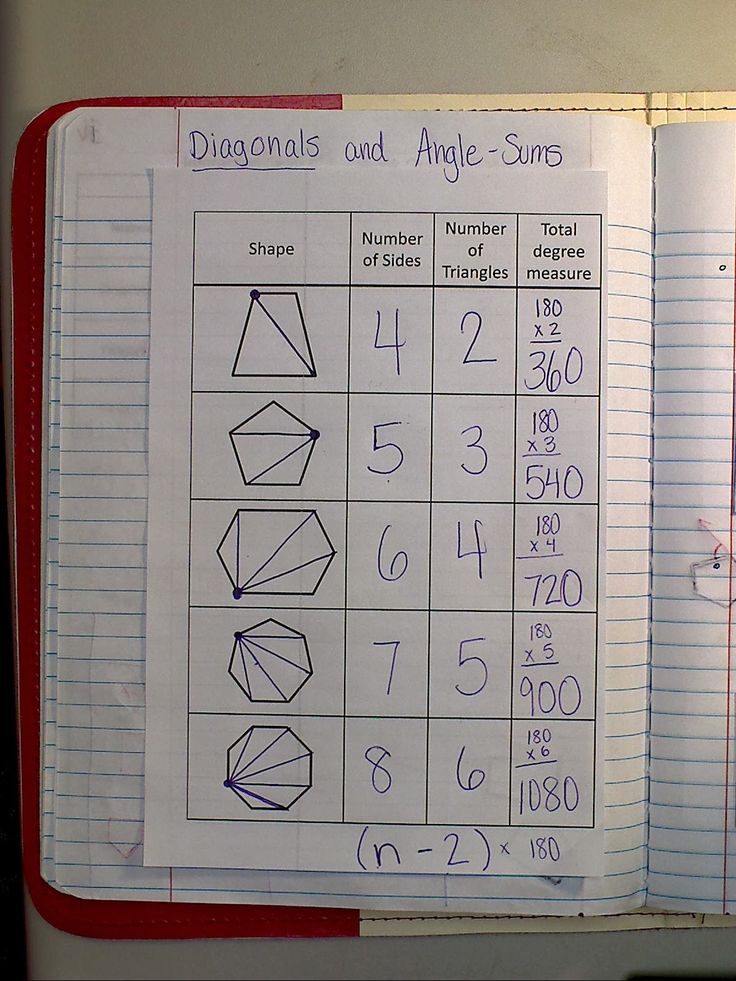 Diagonals and Angle-Sums
Shape
Number of Sides
Number of Triangles
Total degree measure
4
2
180
x 2
360
5
3
180
x 3
540
6
4
180
x 4
720
7
5
180
x 5
900
8
6
180
x 6
1080
(n - 2) x 180